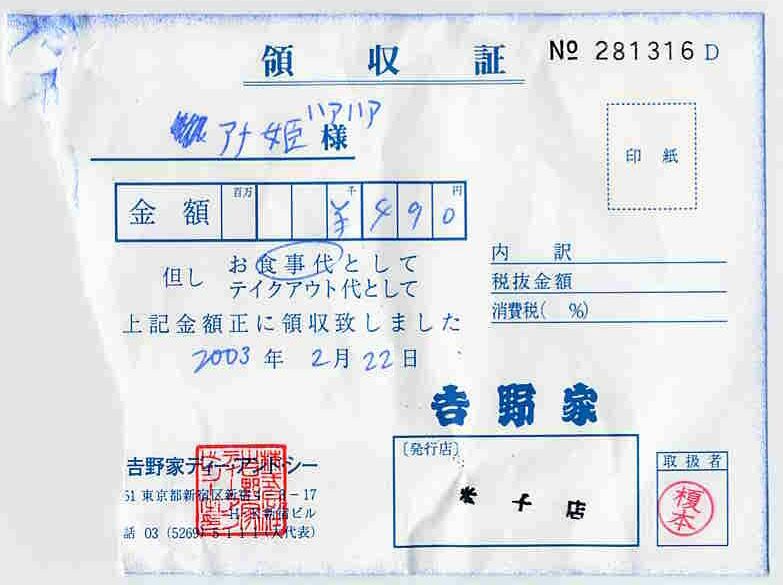 領収証 № 281316 D
アナ姫ハアハア様
印紙
金額 百万 千 円 ¥490
但し お食事代として
テイクアウト代として
上記金額正に領収致しました
2003年2月22日
内訳
税抜金額
消費税( %)
吉野家
吉野家ディー・アンド・シー
51 東京都新宿区新宿
-17
新宿ビル
話 03 (5269) 5111 (大代表)
〔発行店〕
千店
取扱者
榎本